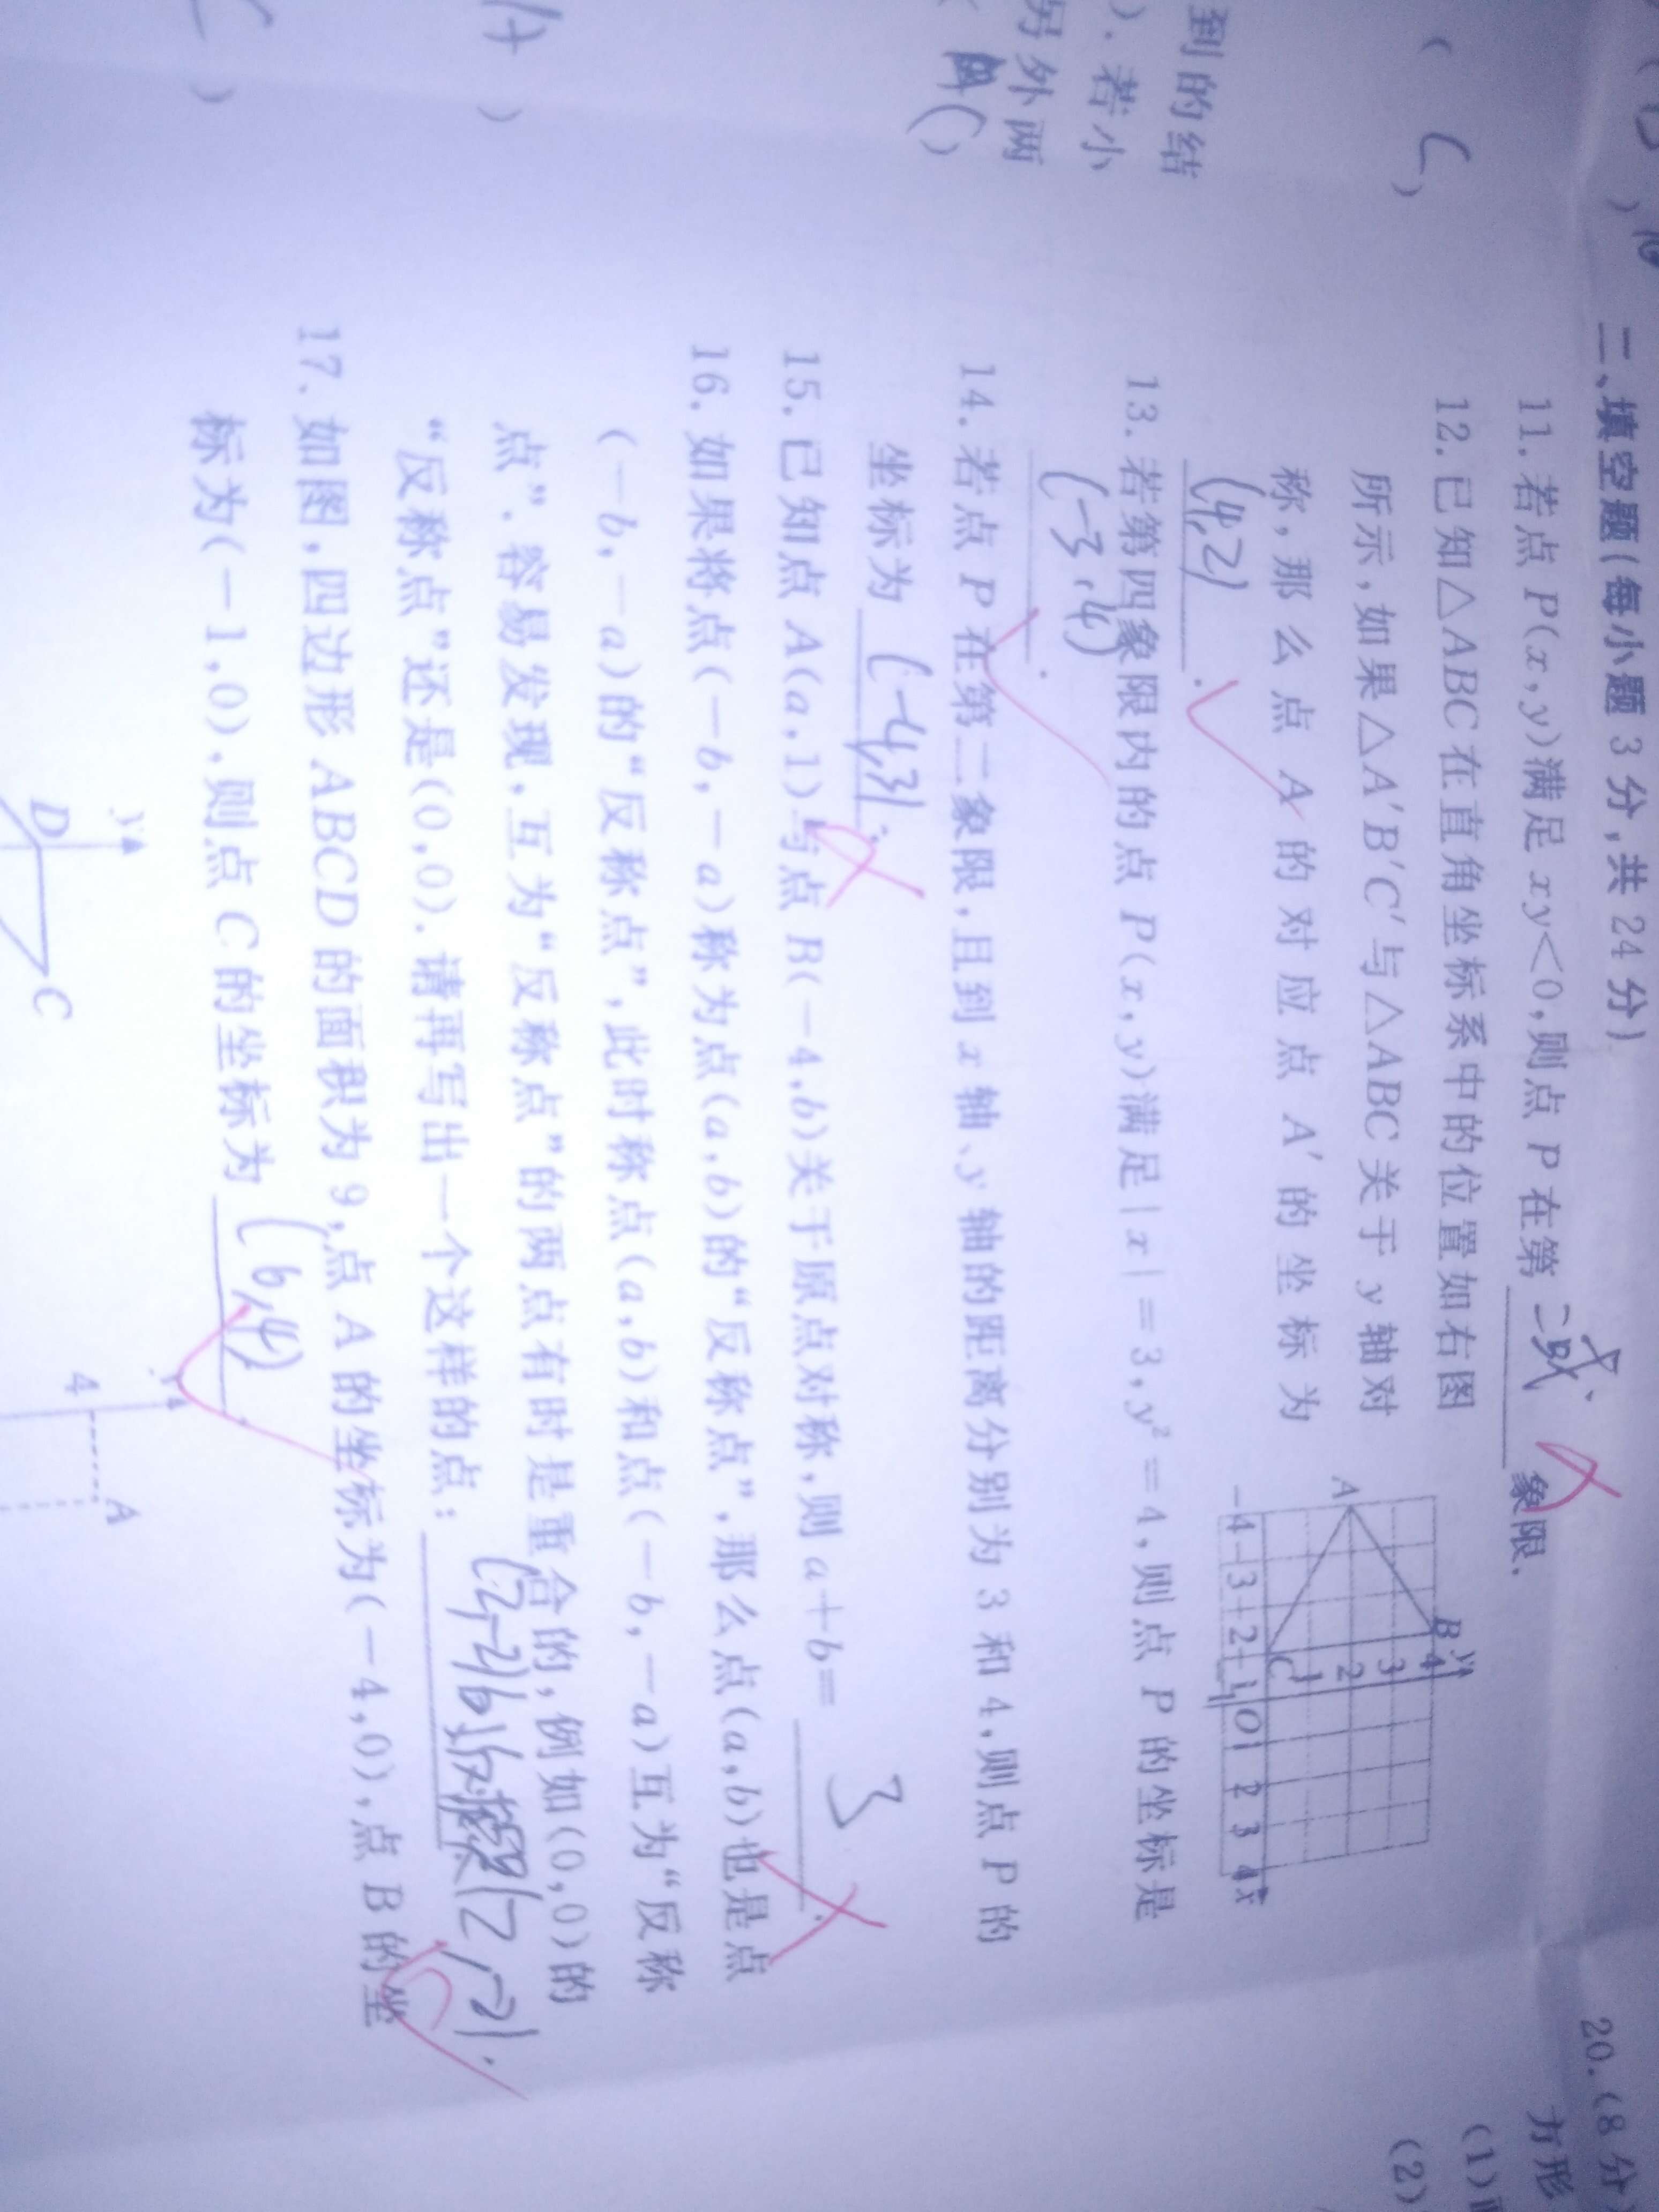 到的结
).若小
另外两
( C )
二、填空题(每小题 3 分,共 24 分)
11. 若点 P(x,y)满足 xy<0,则点 P 在第 二或 象限.
12. 已知△ABC 在直角坐标系中的位置如右图
所示,如果△A′B′C′与△ABC 关于 y 轴对
称,那么点 A 的对应点 A′的坐标为
(4,2).
A B C
y 4 3 2 1
-4 -3 -2 -1 O 1 2 3 4 x
13. 若第四象限内的点 P(x,y)满足|x|=3,y²=4,则点 P 的坐标是
(-3,4).
14. 若点 P 在第二象限,且到 x 轴、y 轴的距离分别为 3 和 4,则点 P 的
坐标为 (-4,3).
15. 已知点 A(a,1)与点 B(-4,b)关于原点对称,则 a+b= 3.
16. 如果将点(-b,-a)称为点(a,b)的“反称点”,那么点(a,b)也是点
(-b,-a)的“反称点”,此时称点(a,b)和点(-b,-a)互为“反称
点”.容易发现,互为“反称点”的两点有时是重合的,例如(0,0)的
“反称点”还是(0,0).请再写出一个这样的点:
(2,-2)
(2,-2).
17. 如图,四边形 ABCD 的面积为 9,点 A 的坐标为(-4,0),点 B 的坐
标为(-1,0),则点 C 的坐标为
y
D C
y
4 A
20.(8 分
方形
(1)
(2)